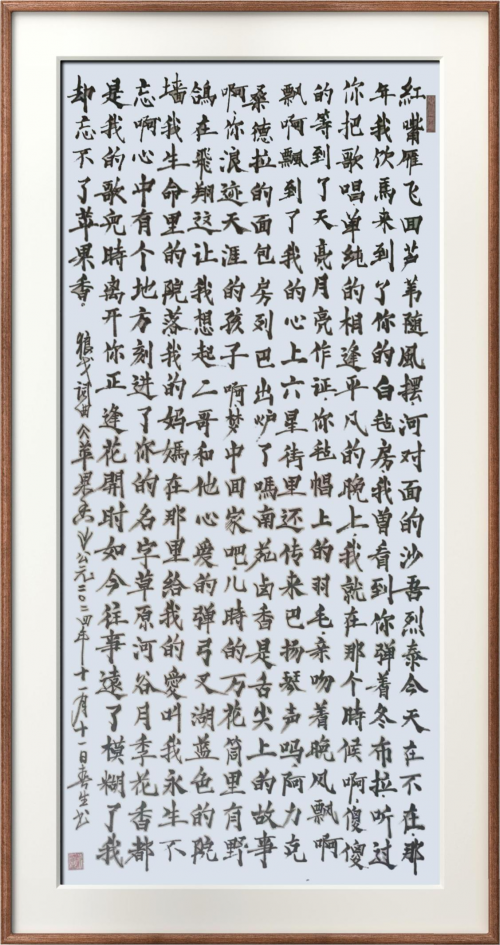 紅嘴雁飞回芦苇随風摆河对面的沙吾烈泰今天在不在那
年我饮馬来到了你的白毡房我曾看到你弹着冬布拉听过
你把歌唱单纯的相逢平凡的晚上我就在那个時候啊傻傻
的等到了天亮月亮作证你毡帽上的羽毛亲吻着晚风飘啊
飘啊飘到了我的心上六星街里还传来巴扬琴声吗阿力克
桑德拉的面包房列巴出炉了嗎南苑卤香是舌尖上的故事
啊你浪迹天涯的孩子啊梦中回家吧儿時的万花筒里有野
鸽在飛翔这让我想起二哥和他心爱的弹弓叉湖蓝色的院
墙我生命里的院落我的妈媽在那里给我的愛叫我永生不
忘啊心中有个地方刻进了你的名字草原河谷月季花香都
是我的歌兒時离开你正逢花開时如今往事遠了模糊了我
却忘不了苹果香
狼戈词曲苹果香公元二〇二四年十一月十一日春生书